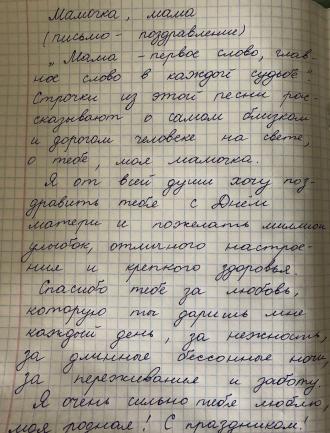 Мамочка, мама
(письмо - поздравление)
„Мама - первое слово, глав-
ное слово в каждой судьбе“
Строчки из этой песни рас-
сказывают о самом близком
и дорогом человеке на свете,
о тебе, моя мамочка.
Я от всей души хочу поз-
дравить тебя с Днём
матери и пожелать миллион
улыбок, отличного настрое-
ния и крепкого здоровья.
Спасибо тебе за любовь,
которую ты даришь мне
каждый день, за нежность,
за длинные бессонные ночи,
за переживание и заботу.
Я очень сильно тебя люблю,
моя родная! С праздником!